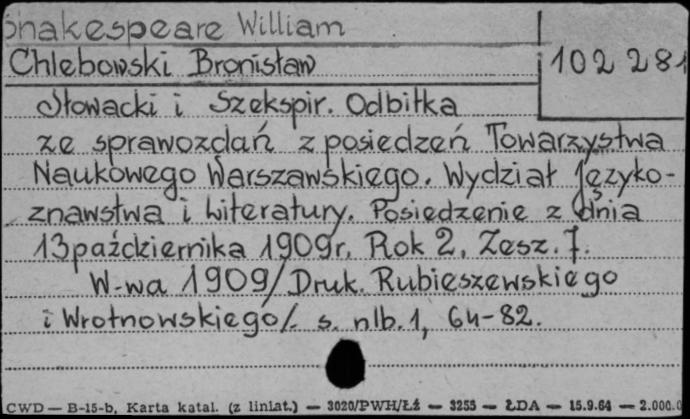 Shakespeare William
Chlebowski Bronisław
102 281
Słowacki i Szekspir. Odbitka
ze sprawozdań z posiedzeń Towarzystwa
Naukowego Warszawskiego. Wydział Języko-
znawstwa i Literatury. Posiedzenie z dnia
13 października 1909r. Rok 2. Zesz. 7.
W-wa 1909/Druk. Rubieszewskiego
i Wrotnowskiego/. s. nlb. 1, 64-82.
CWD — B-15-b, Karta katal. (z liniat.) — 3020/PWH/ŁŹ — 3255 — ŁDA — 15.9.64 — 2.000.0